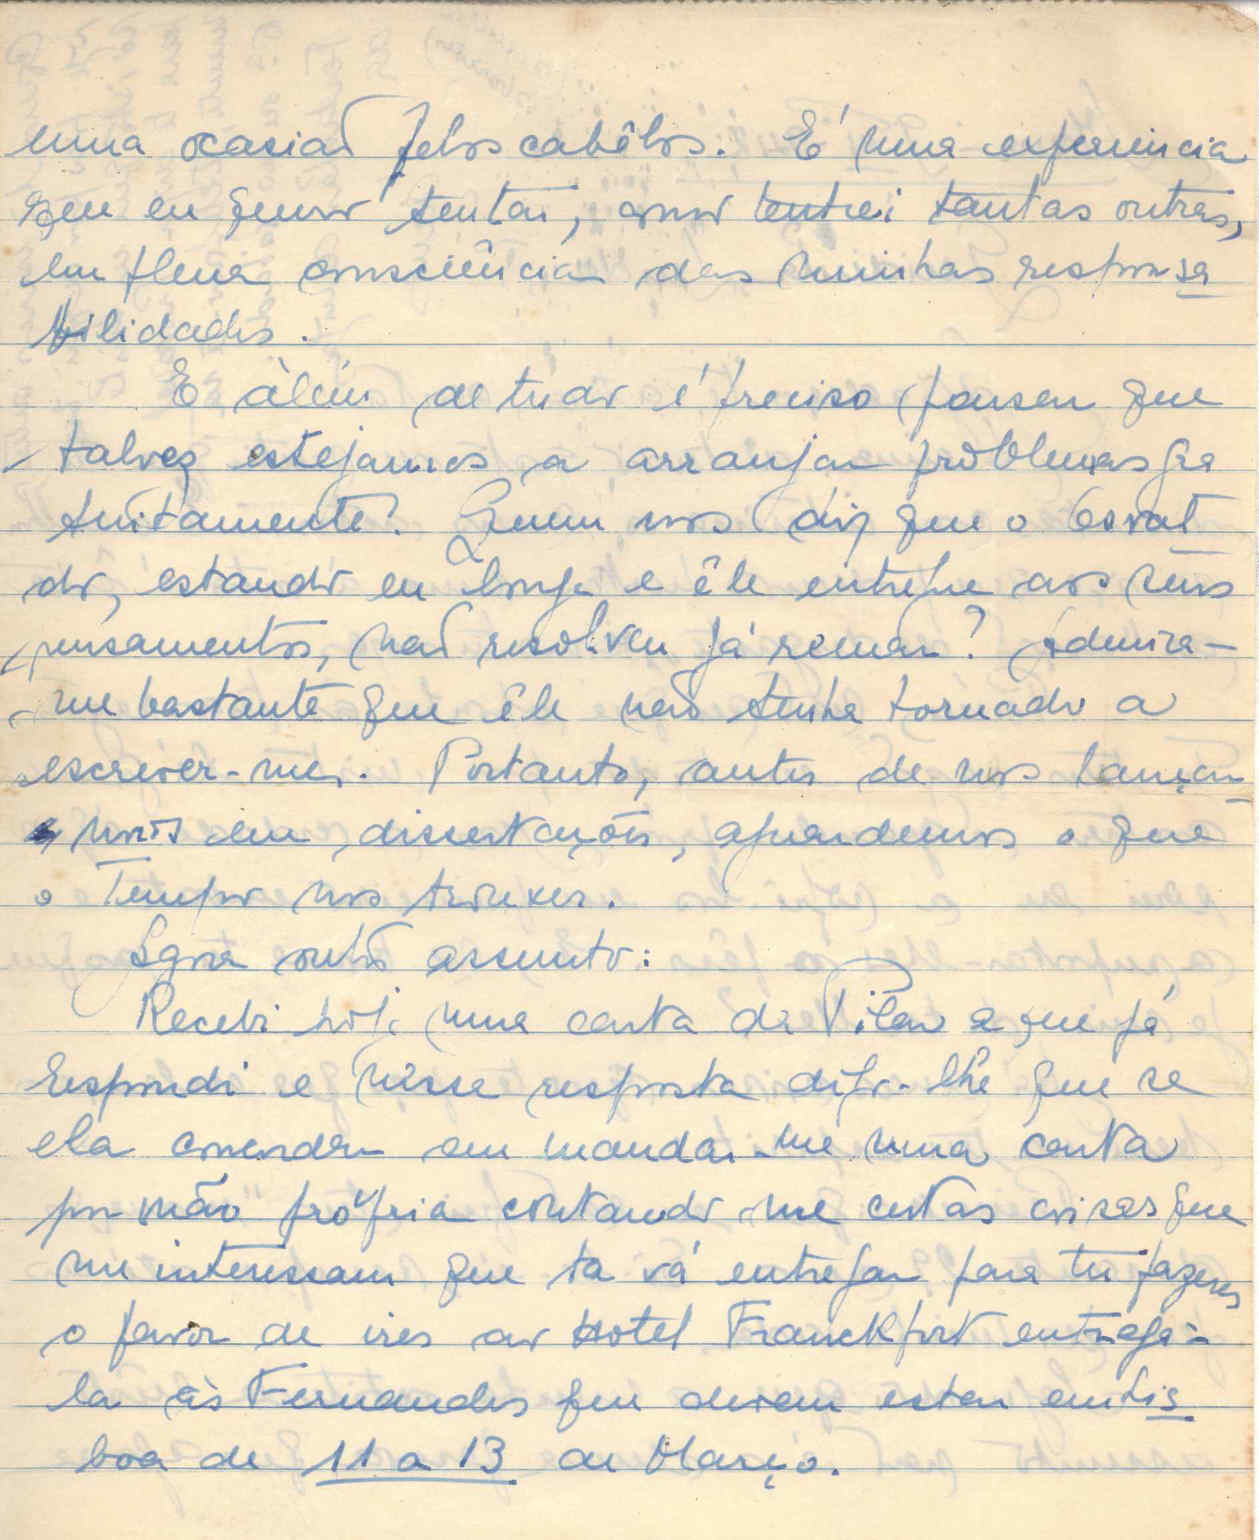 uma ocasião pelos cabêlos. É uma experiencia
que eu quero tentar, como tentei tantas outras,
em plena consciência das minhas responsa
bilidades.
E àlém de tudo é preciso pensar que
talvez estejamos a arranjar problemas gra
tuitamente. Quem nos diz que o
do, estando eu longe e êle entregue aos seus
pensamentos, não resolveu já recuar? Admira-
me bastante que êle não tenha tornado a
escrever-me. Portanto, antes de nos lançar-
mos em dissertações, aguardemos o que
o Tempo nos trouxer.
Agora outro assunto:
Recebi hoje uma carta da Pilar a que já
respondi e nessa resposta digo-lhe que se
ela concordar em mandar-me uma carta
por mão própria contando-me certas coisas que
me interessam que ta vá entregar para tu fazeres
o favor de ires ao Hotel Franckfort entregá-
la às Fernandes que devem estar em Lis
boa de 11 a 13 de Março.